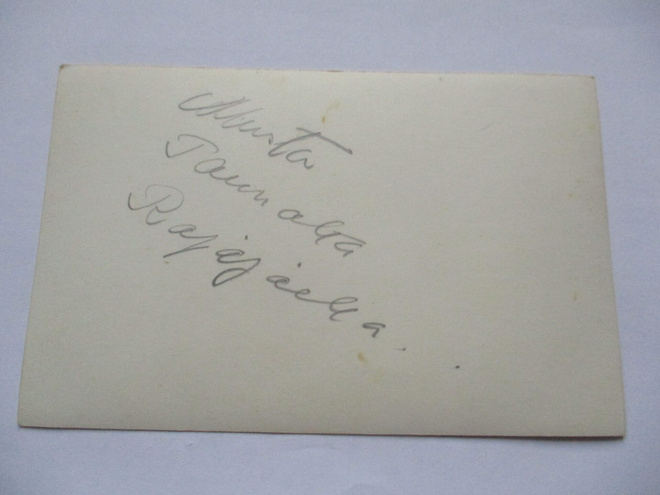 Muisto
Taunolta
Rajajoella.